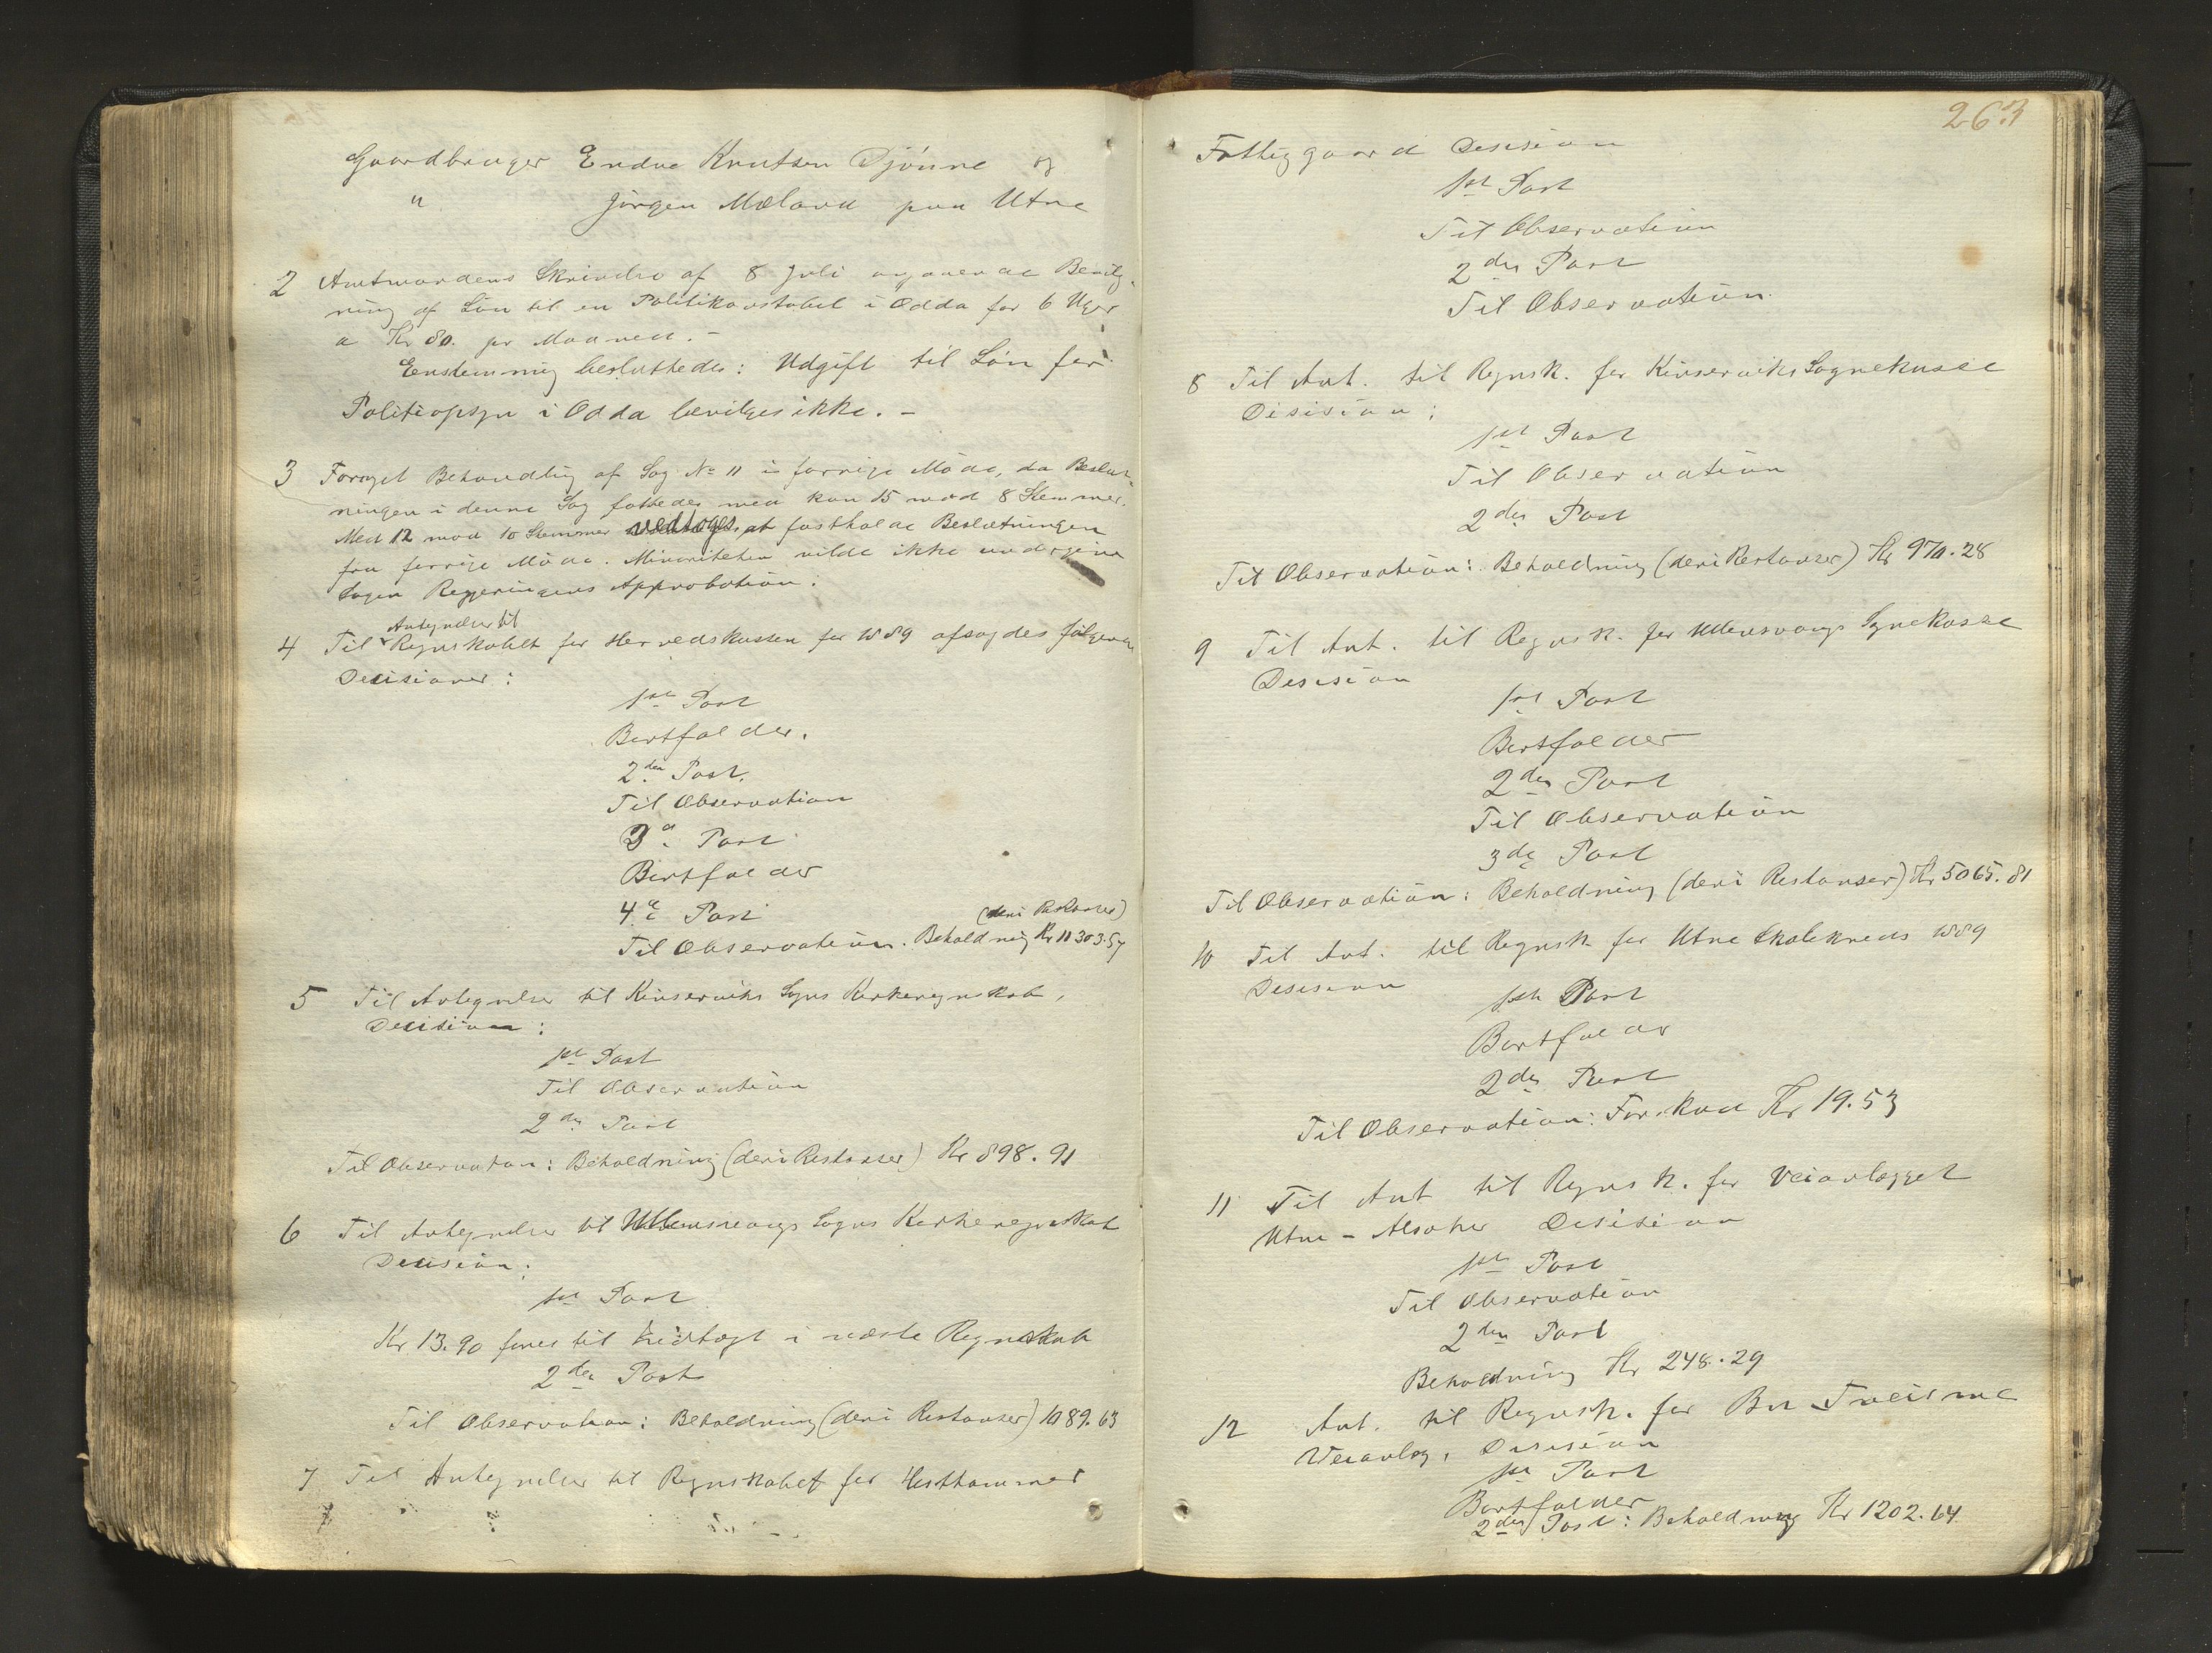 Gaardbruger Endre Knutsen Djönne og
" Jörgen Mæland paa Utne
2 Amtmandens Skrivelse af 8 Juli angaaende Bevilg-
ning af Lön til en Politikonstabel i Odda for 6 Uger
a Kr 80. pr Maaned. -
Enstemmig besluttedes: Udgift til Lön for
Politiopsyn i Odda bevilges ikke. -
3 Fornyet Behandling af Sag No 11 i forrige Möde, da Beslut-
ningen i denne Sag fattedes med kun 15 mod 8 Stemmer.
Med 12 mod 10 Stemmer vedtoges at fastholde Beslutningen
fra forrige Möde. Minoriteten vilde ikke undergive
Sagen Regjeringens Approbation.
Antegnelser til
4 Til Regnskabet for Herredskassen for 1889 afsagdes fölgende
Decisioner:
1ste Post
Bortfalder.
2den Post.
Til Observation
3die Post
Bortfalder
4de Post (deri Restanser)
Til Observation. Beholdning Kr 11303.57
5 Til Antegnelser til Kinserviks Sogns Kirkeregnskab,
Decision:
1ste Post
Til Observation
2den Post
Til Observation: Beholdning (deri Restanser) Kr 898.91
6 Til Antegnelser til Ullensvangs Sogns Kirkeregnskab
Decision:
1ste Post
Kr. 13.90 föres til Indtægt i næste Regnskab
2den Post
Til Observation: Beholdning (deri Restanser) 1089.63
7 Til Antegnelser til Regnskabet for Hesthammer
263
Fattiggaard Desision
1ste Post
Til Observation
2den Post
Til Observation.
8 Til Ant. til Regnsk. for Kinserviks Sognekasse
Desision:
1ste Post
Til Observation
2den Post
Til Observation: Beholdning (deri Restanser) Kr 970.28
9 Til Ant. til Regnsk. for Ullensvangs Sognekasse
Desision
1ste Post
Bortfalder
2den Post
Til Observation
3die Post
Til Observation: Beholdning (deri Restanser) Kr 5065.81
10 Til Ant. til Regnsk for Utne Skolekreds 1889
Desision
1ste Post
Bortfalder
2den Post
Til Observation: Forskud Kr 19.53
11 Til Ant til Regnsk. for Veianlægget
Utne - Alsaker Desision
1ste Post
Til Observation
2den Post
Beholdning Kr 248.29
12 Ant. til Regnsk. for Bu Tveisme
Veianlæg, Desision
1ste Post
Bortfalder
2den Post: Beholdning Kr 1202.64